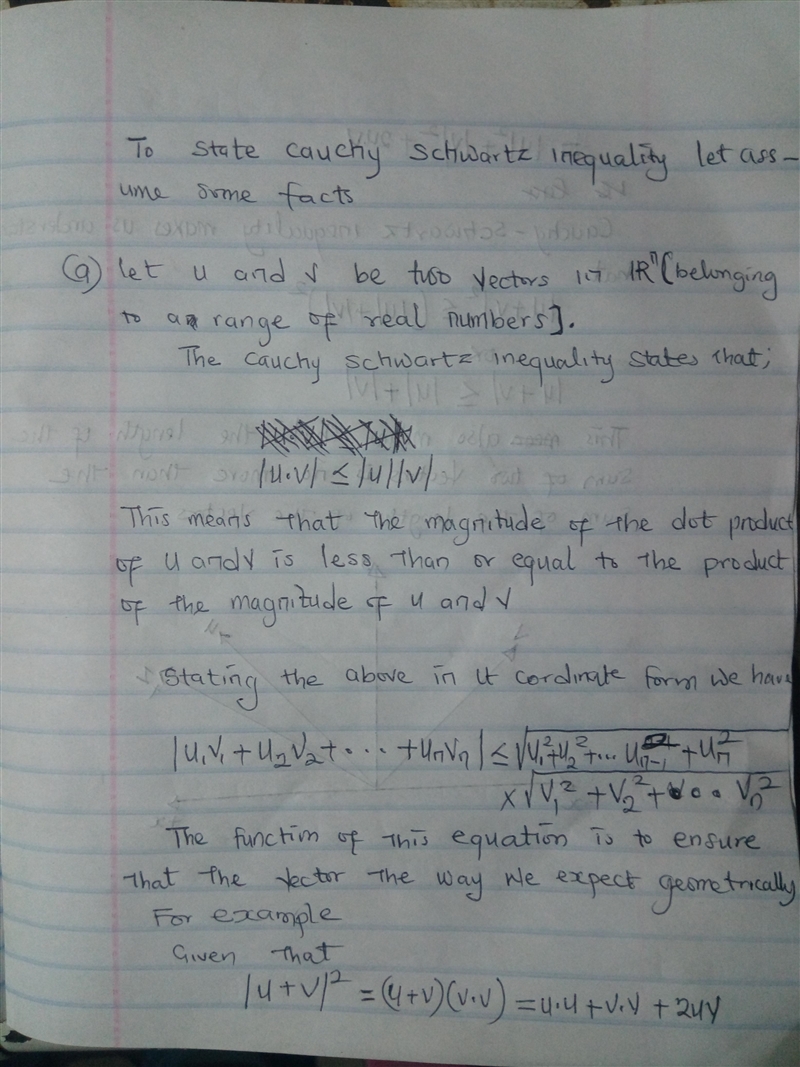 To state Cauchy Schwartz inequality let ass-
ume some facts
(a) let u and v be two vectors in ℝⁿ[belonging
to a range of real numbers].
The Cauchy Schwartz inequality states that;
|u.v| ≤ |u||v|
This means that the magnitude of the dot product
of u and v is less than or equal to the product
of the magnitude of u and v
Stating the above in it cordinate form we have
|u₁v₁ + u₂v₂ + ... + uₙvₙ| ≤ √u₁²+u₂²+... uₙ₋₁² + uₙ²
x √v₁² + v₂² + ... vₙ²
The function of this equation is to ensure
that the vector the way we expect geometrically
For example
Given that
|u + v|² = (u+v)(v.v) = u.u + v.v + 2uv